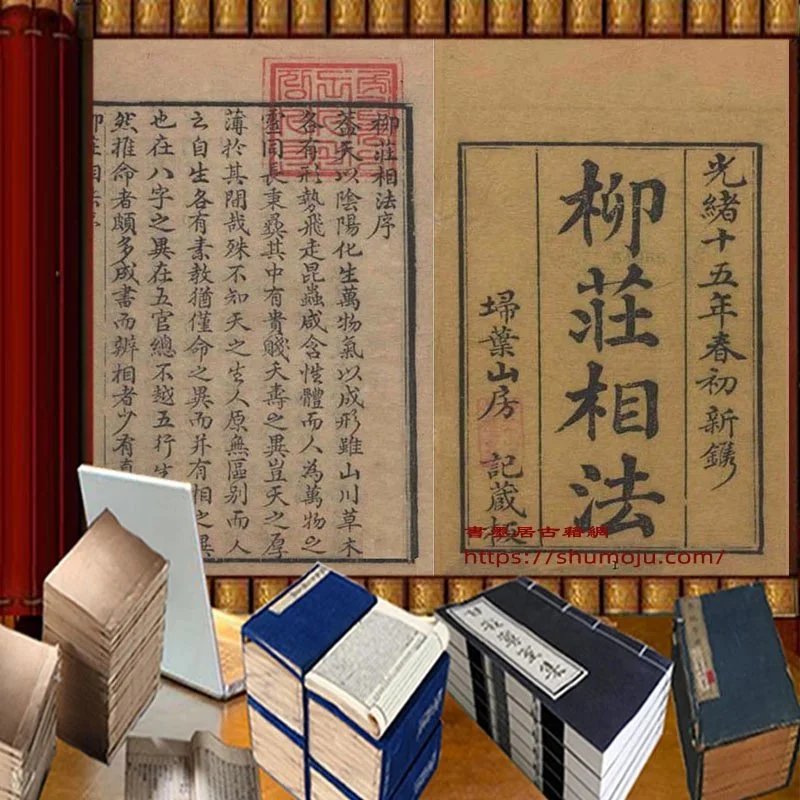 光緒十五年春初新鐫
柳莊相法
埽葉山房 記藏板
柳莊相法序
蓋天以陰陽化生萬物氣以成形雖山川草木
各有形勢飛走昆蟲咸含性體而人為萬物之
靈同長秉彝其中有貴賤夭壽之異豈天之厚
薄於其間哉殊不知天之生人原無區別而人
云自生各有素教猶僅命之異而并有相之異
也在八字之異在五官總不越五行生
然推命者頗多成書而辨相者少有
書墨居古籍網
https://shumoju.com/